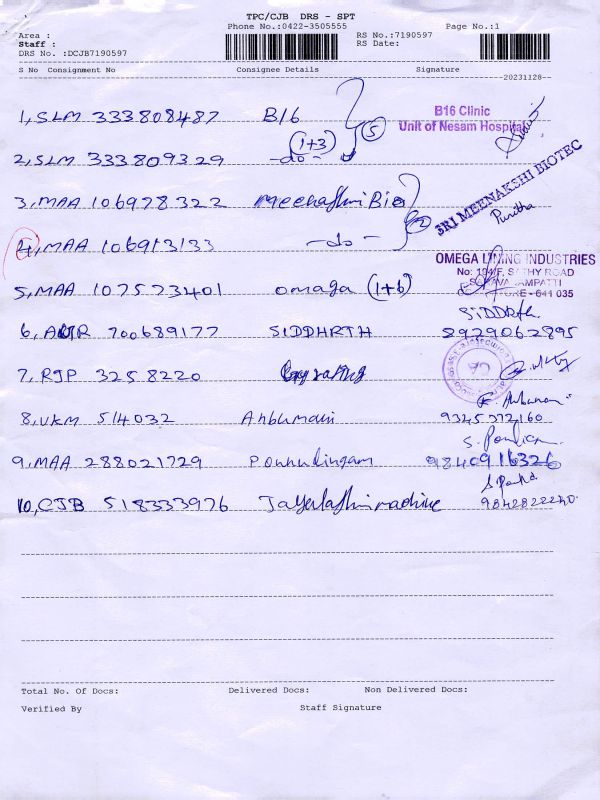 TPC/CJB DRS - SPT
Phone No.:0422-3505555 Page No.:1
Area : RS No.:7190597
Staff : RS Date:
DRS No. :DCJB7190597
S No Consignment No Consignee Details Signature
20231128
1, SLM 333808487 B/6
B16 Clinic
Unit of Nesam Hospital
(1+3) 5
2, SLM 333809329 -do-
SRI MEENAKSHI BIOTEC
3, MAA 106978322 Meenakshi Bio 2
Punitha
4, MAA 106913133 -do-
OMEGA LINING INDUSTRIES
No: 194/F, SATHY ROAD
5, MAA 107573401 omega (1+6)
641 035
SIDDRth
6, 700689177 SIDDHRTH 8929062895
7, RJP 3258220
8, VKM 514032 Anbumani 9345372160
9, MAA 288021729 Ponnulingam 9840916326
10, CJB 518333976 9842822240
Total No. Of Docs: Delivered Docs: Non Delivered Docs:
Verified By Staff Signature